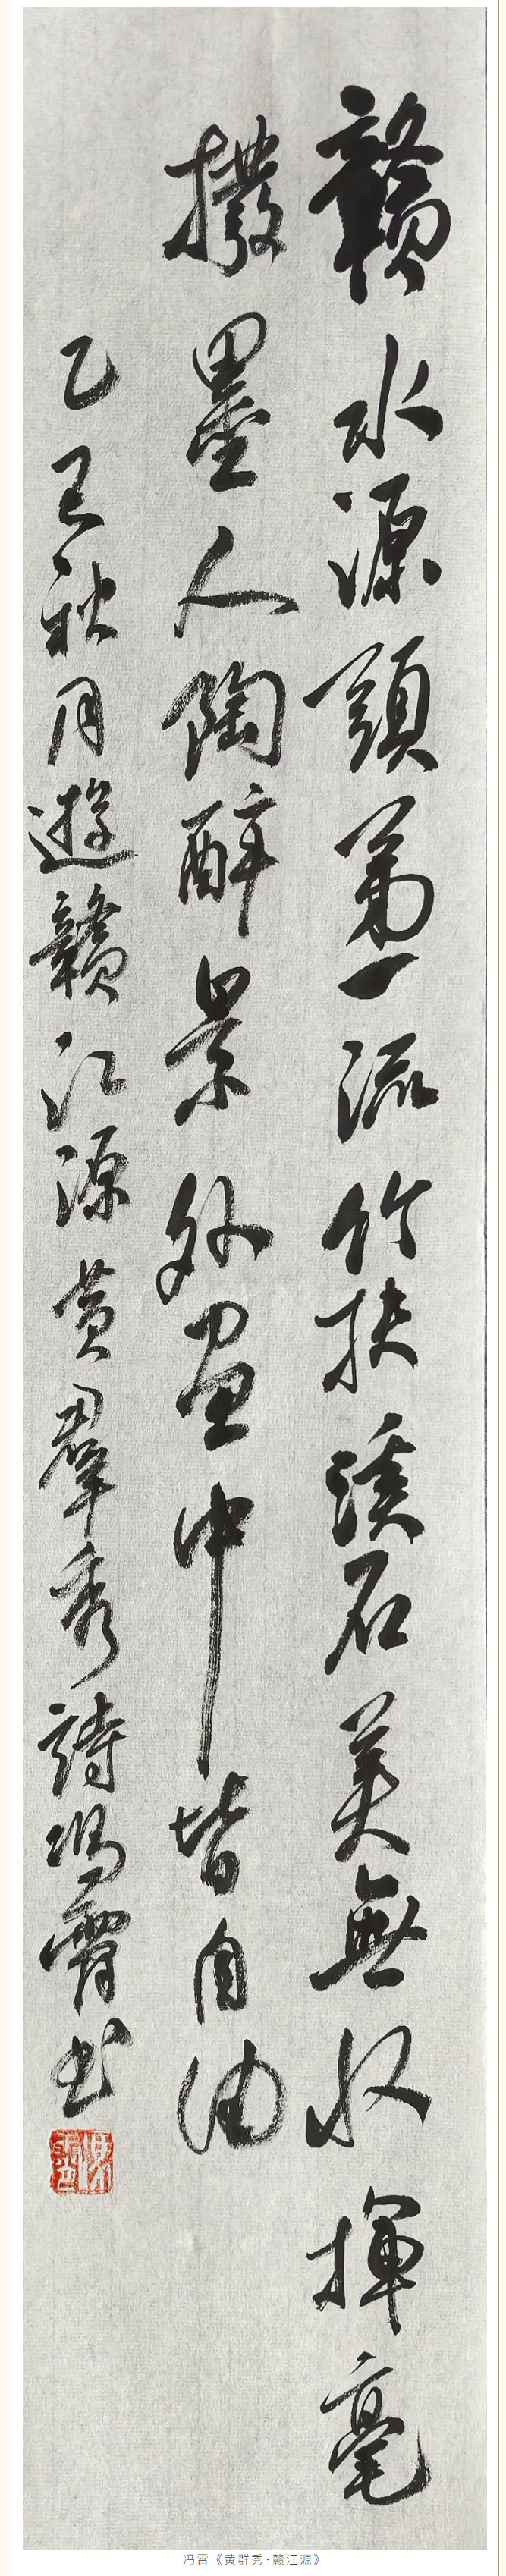 贛水源頭第一流竹扶溪石美無收揮毫
撥墨人陶醉景外畫中皆自由
乙巳秋月遊贛江源黄羣秀詩馮霄书
冯霄《黄群秀·赣江源》